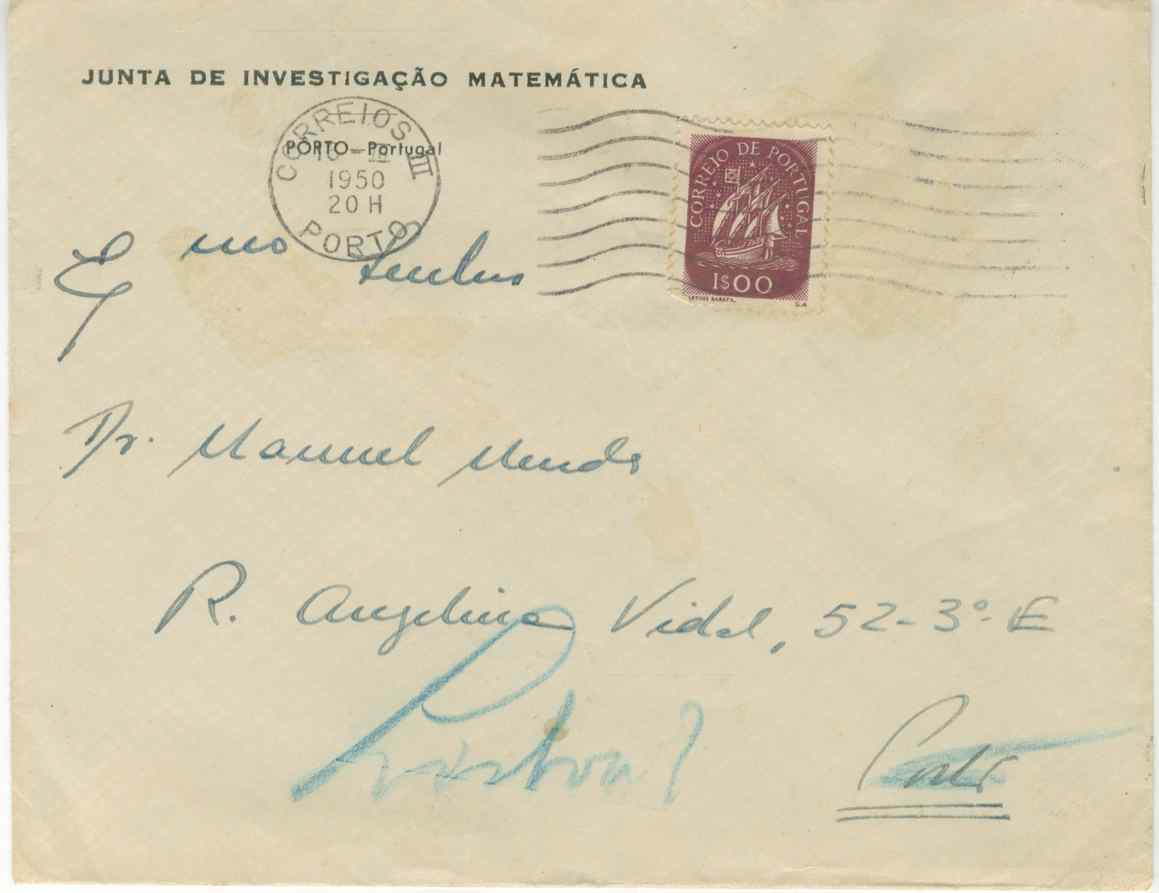 JUNTA DE INVESTIGAÇÃO MATEMÁTICA
PÔRTO—Portugal
CORREIOS
III
1950
20 H
PORTO
CORREIO DE PORTUGAL
1$00
Eˣᵐᵒ Senhor
Dr. Manuel Mendes
R. Angelina Vidal, 52-3º-E
Lisboa?
Porto